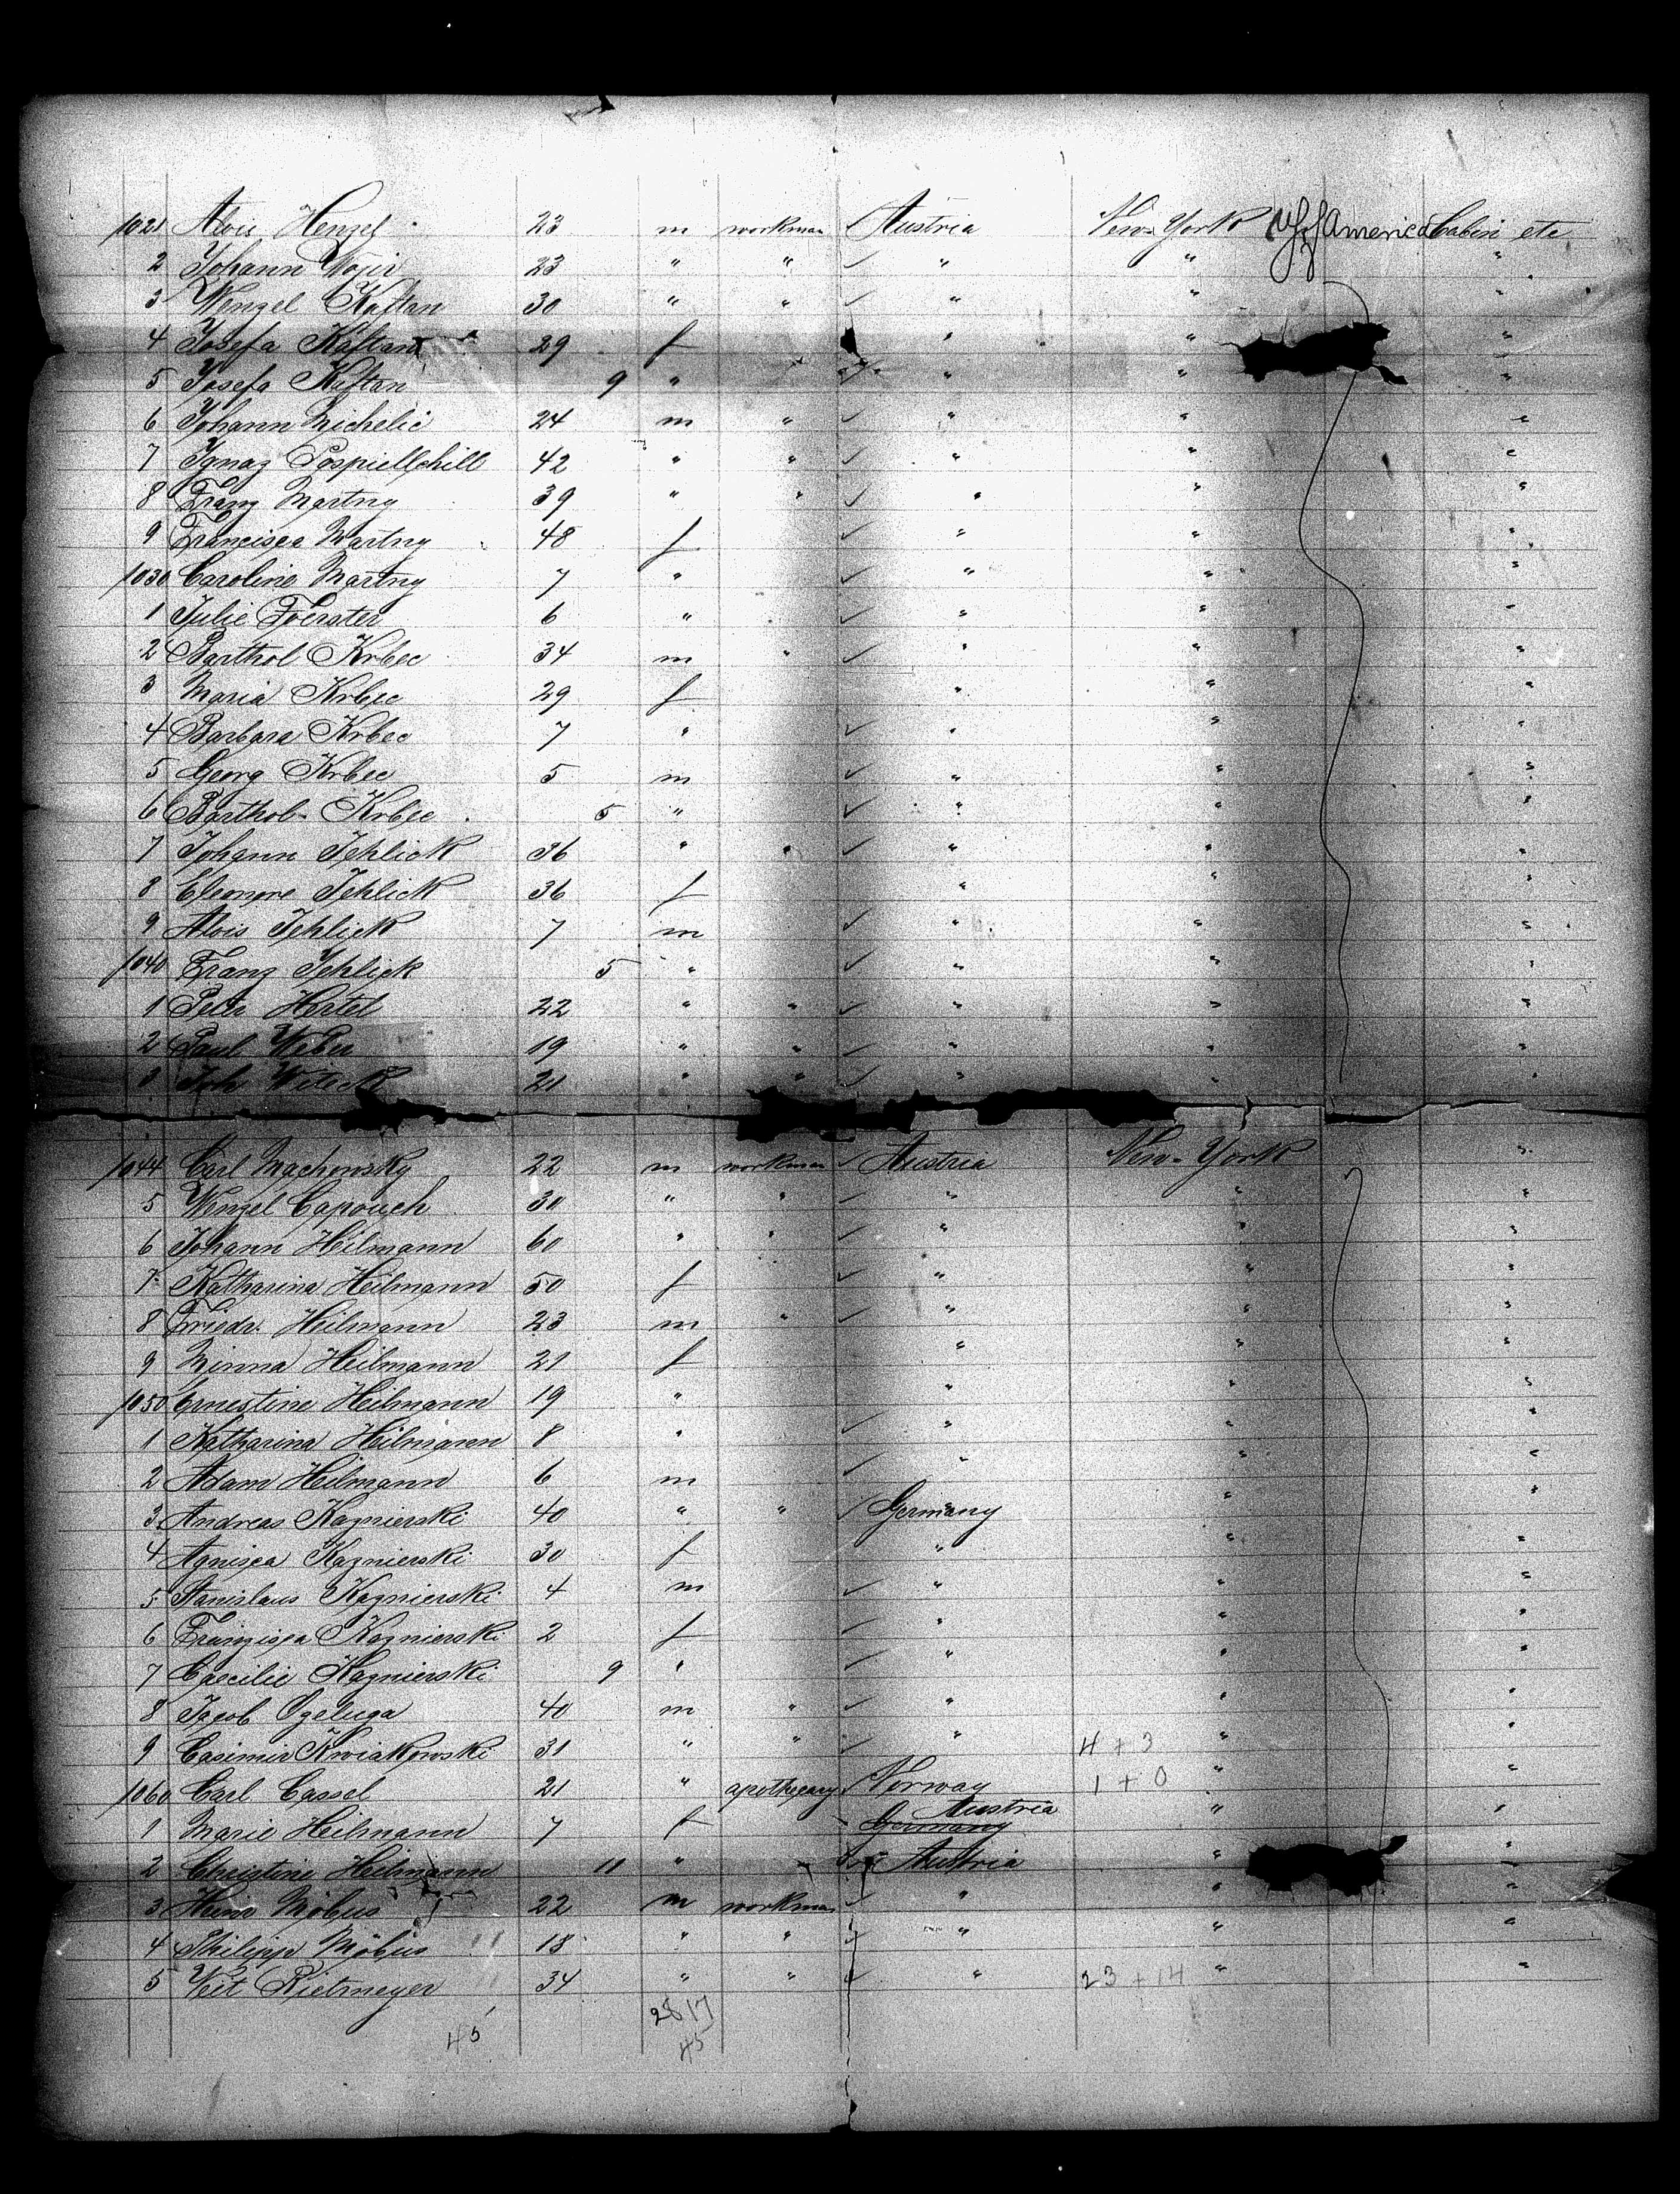 1021 Alois Henzel 23 m workman Austria New-York U.S. of America Cabin etc
2 Johann Wojir 23 " " ✓ " " "
3 Wenzel Kaftan 30 " " ✓ " " "
4 Josefa Kaftan 29 f " " "
5 Josefa Kaftan 9 " " " "
6 Johann Michelic 24 m " ✓ " " "
7 Ignaz Pospiellchill 42 " " ✓ " " "
8 Franz Martny 39 " " ✓ " " "
9 Francisca Martny 48 f ✓ " " "
1030 Caroline Martny 7 " ✓ " " "
1 Julie Foerster 6 " ✓ " " "
2 Barthol Krbec 34 m " ✓ " " "
3 Maria Krbec 29 f " " "
4 Barbara Krbec 7 " ✓ " " "
5 Georg Krbec 5 m ✓ " " "
6 Barthol. Krbec 5 " ✓ " " "
7 Johann Jehlick 36 " " ✓ " " "
8 Eleonore Jehlick 36 f " " "
9 Alois Jehlick 7 m ✓ " " "
1040 Franz Jehlick 5 " ✓ " " "
1 Peter Hertel 22 " " ✓ " " "
2 Paul Weber 19 " " ✓ " " "
3 Joh. Witeck 21 " " ✓ " " "
1044 Carl Machowsky 22 m workman ✓ Austria New-York "
5 Wenzel Capouch 30 " " ✓ " " "
6 Johann Heilmann 60 " " ✓ " " "
7 Katharina Heilmann 50 f ✓ " " "
8 Friedr. Heilmann 23 m " ✓ " " "
9 Minna Heilmann 21 f " " "
1050 Ernestine Heilmann 19 " " " "
1 Katharina Heilmann 8 " ✓ " " "
2 Adam Heilmann 6 m ✓ " " "
3 Andreas Kaznierski 40 " " ✓ Germany " "
4 Agnisca Kaznierski 30 f " " "
5 Stanislaus Kaznierski 4 m ✓ " " "
6 Franzisca Kaznierski 2 f ✓ " " "
7 Caecilie Kaznierski 9 " ✓ " " "
8 Jacob Ozeluga 40 m " ✓ " " "
9 Casimir Kwiakowski 31 " " ✓ " 4 + 3 " "
1060 Carl Cassel 21 " apothecary ✓ Norway 1 + 0 " "
1 Marie Heilmann 7 f Germany Austria " "
2 Christine Heilmann 11 " Austria " "
3 Heinr Möbus 22 m workman ✓ " " "
4 Philipp Möbus 18 " " ✓ " " "
5 Veit Rietmeyer 34 " " ✓ " 23 + 14 " "
28 17
45 45